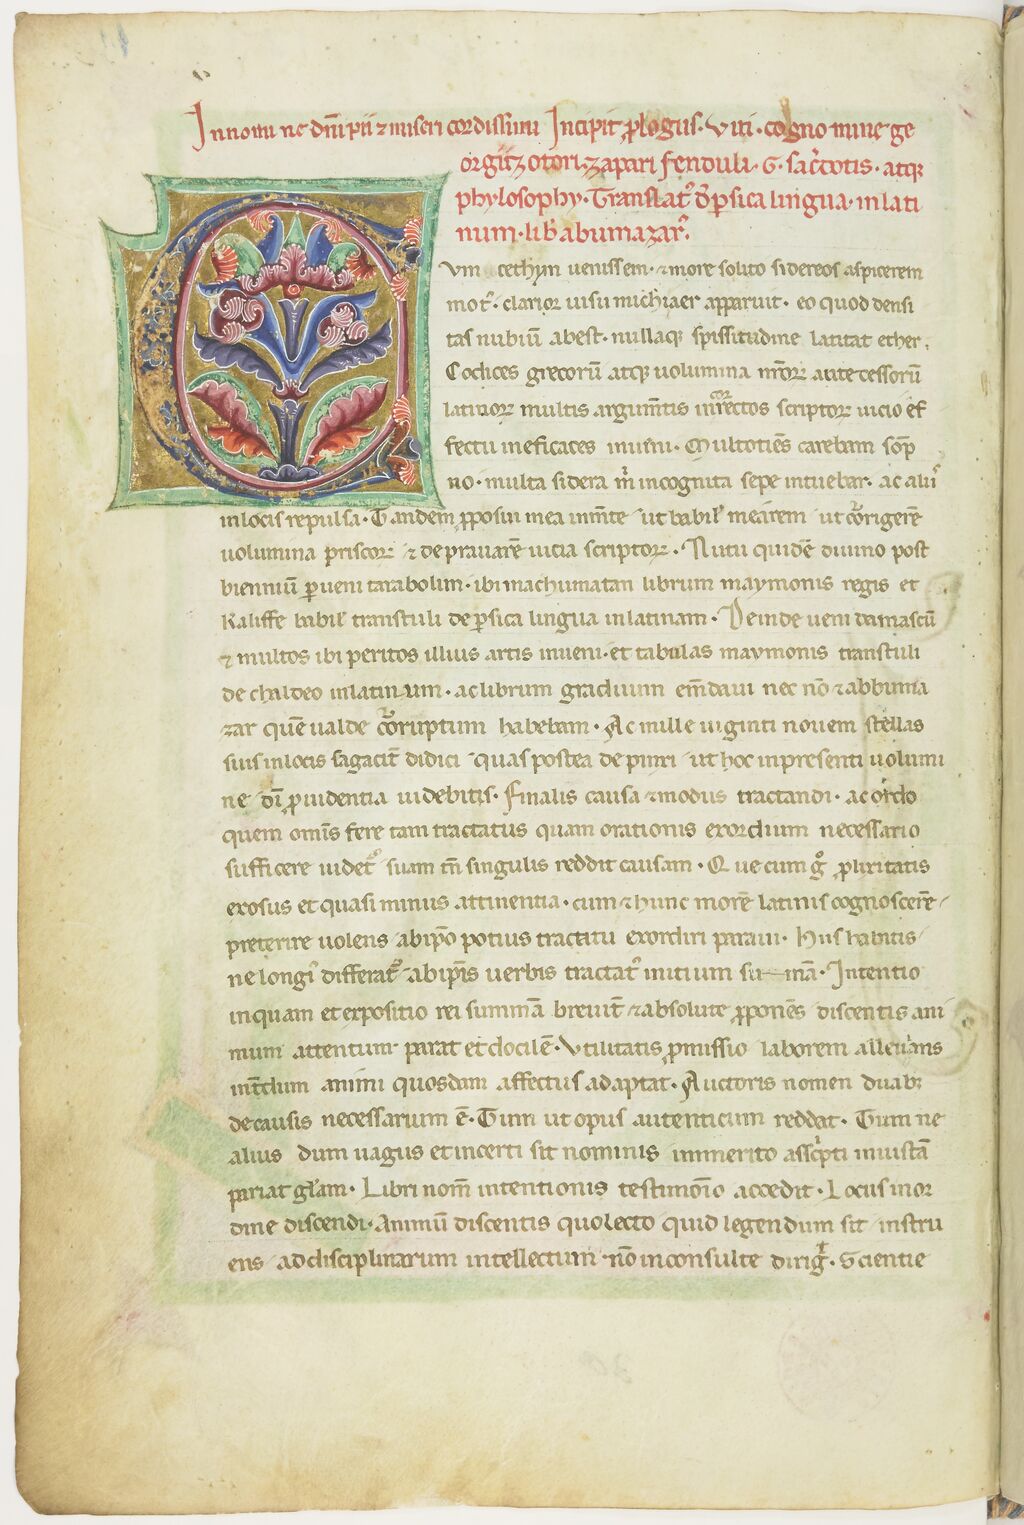 In nomine dn̄i pii ⁊ miseri cordissimi Incipit ꝓlogus. viri. cognomine ge
orgii zotori. zapari fenduli. G. sac̄dotis. atqꝫ
phylosophy. Translat᷒ de ꝑsica lingua. in lati
num. lib̄ abumazar᷒.
Cvm cethym uenissem. ⁊ more solito sidereos aspicerem
mot᷒. clarior uisu michi aer apparuit. eo quod densi
tas nubiū abest. nullaqꝫ spissitudine latitat ether.
Codices grecorū atqꝫ uolumina nr̄oꝝ antecessorū
latinoꝝ multis argum̄tis incorrectos scriptoꝝ uicio ef
fectu ineficaces inueni. Multotiēs carebam sop̄
no. multa sidera m̄ incognita sepe intuebar. ac alii᷒
in locis repulsa. Tandem ꝓposui mea in mēte ut babil̄ mearem ut corrigerē
uolumina priscoꝝ ⁊ deprauarē uicia scriptoꝝ. Nutu quidē diuino post
bienniū ꝑueni tarabolim. ibi machumatan librum maymonis regis et
kaliffe babil̄ transtuli de ꝑsica lingua in latinam. Deinde ueni damascū
⁊ multos ibi peritos illius artis inueni. et tabulas maymonis transtuli
de chaldeo in latinum. ac librum graduum em̄daui nec nō ⁊ abbuma
zar quē ualde corruptum habebam. Ac mille uiginti nouem stellas
suis in locis sagacit̄ didici quas postea depinxi ut hoc in presenti uolumi
ne dī ꝓuidentia uidebitis. Finalis causa ⁊ modus tractandi. ac ordo
quem omīs fere tam tractatus quam orationis exordium necessario
sufficere uidet᷒ suam tn̄ singulis reddit causam. Quecumqꝫ ꝓlixitatis
exosus et quasi minus attinentia. cum ⁊ hunc morē latinis cognoscerē
preterire uolens ab ip̄o potius tractatu exordiri paraui. Hiis habitis
ne longi᷒ differat᷒ ab ip̄is uerbis tractat᷒ initium su mā. Intentio
inquam et expositio rei summā breuit̄ ⁊ absolute ꝓponēs discentis ani
mum attentum parat et docilē. Vtilitatis ꝓmissio laborem alleuians
int̄dum animi quosdam affectus adaptat. Auctoris nomen duabꝫ
de causis necessarium ē. Tum ut opus autenticum reddat. Tum ne
alius dum uagus et incerti sit nominis inmerito asscͥpti in iustā
pariat gl̄am. Libri nom̄ intentionis testimōio accedit. Locus in or
dine discendi. Animū discentis quo lecto quid legendum sit instru
ens ad disciplinarum intellectum nō inconsulte dirigit. Scientie